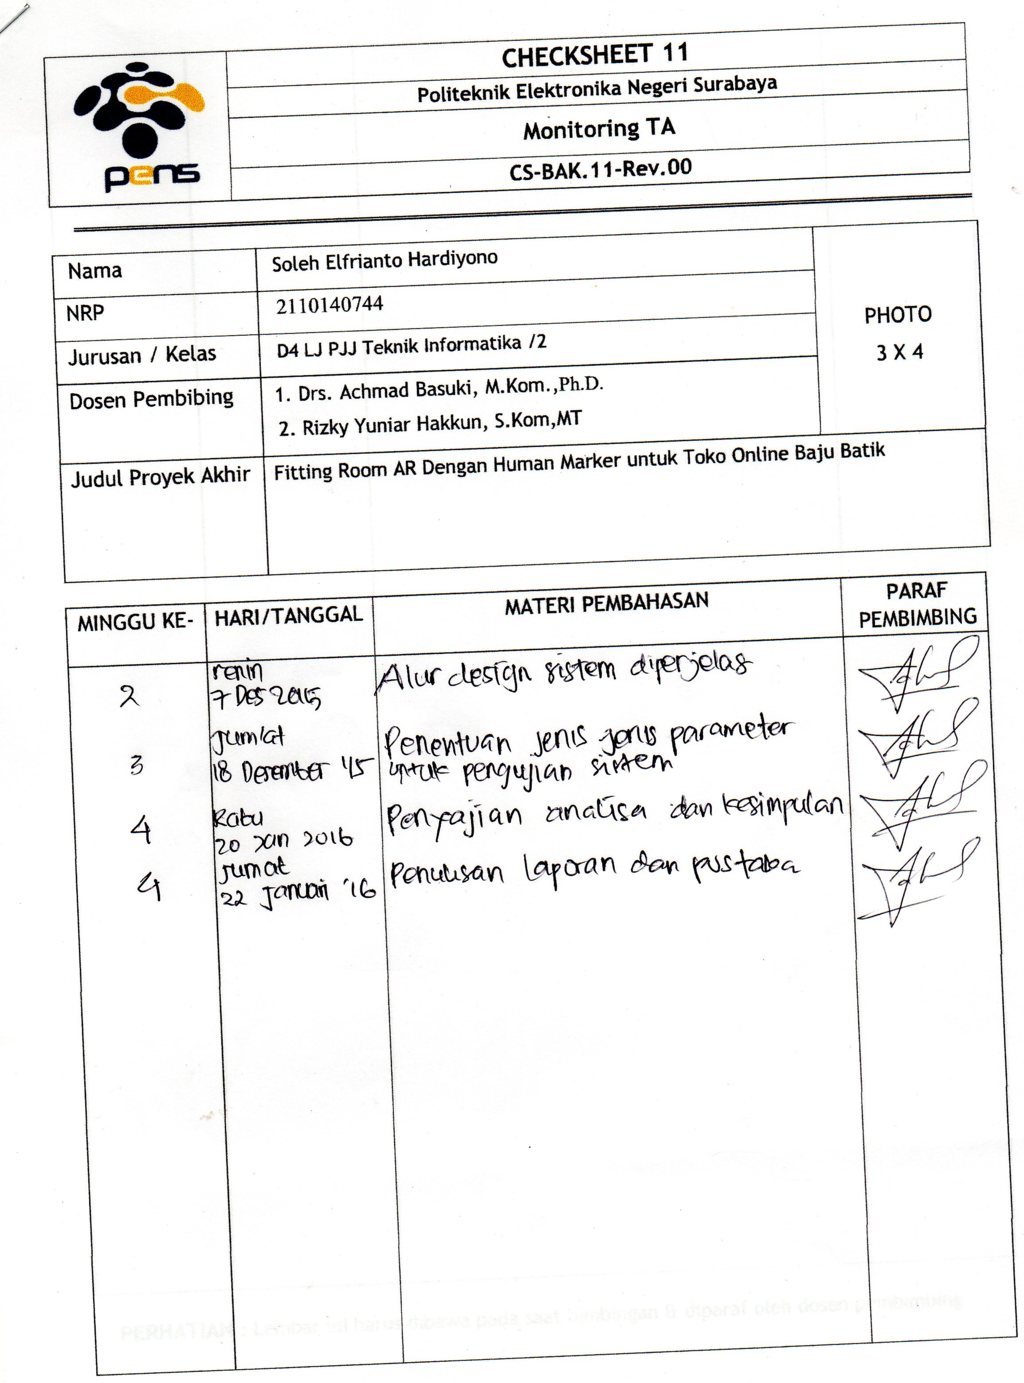 CHECKSHEET 11
Politeknik Elektronika Negeri Surabaya
Monitoring TA
CS-BAK.11-Rev.00
pens
Nama
Soleh Elfrianto Hardiyono
NRP
2110140744
Jurusan / Kelas
D4 LJ PJJ Teknik Informatika /2
Dosen Pembibing
1. Drs. Achmad Basuki, M.Kom.,Ph.D.
2. Rizky Yuniar Hakkun, S.Kom,MT
PHOTO
3 X 4
Judul Proyek Akhir
Fitting Room AR Dengan Human Marker untuk Toko Online Baju Batik
MINGGU KE-
HARI/TANGGAL
MATERI PEMBAHASAN
PARAF
PEMBIMBING
2
senin
7 Des 2015
Alur design sistem diperjelas
3
jum'at
18 Desember '15
Penentuan jenis jenis parameter
untuk pengujian sistem
4
Rabu
20 Jan 2016
Penyajian analisa dan kesimpulan
4
jumat
22 januari '16
Penulisan laporan dan pustaka
PERHATIAN : Lembar ini harus dibawa pada saat bimbingan & diparaf oleh dosen pembimbing